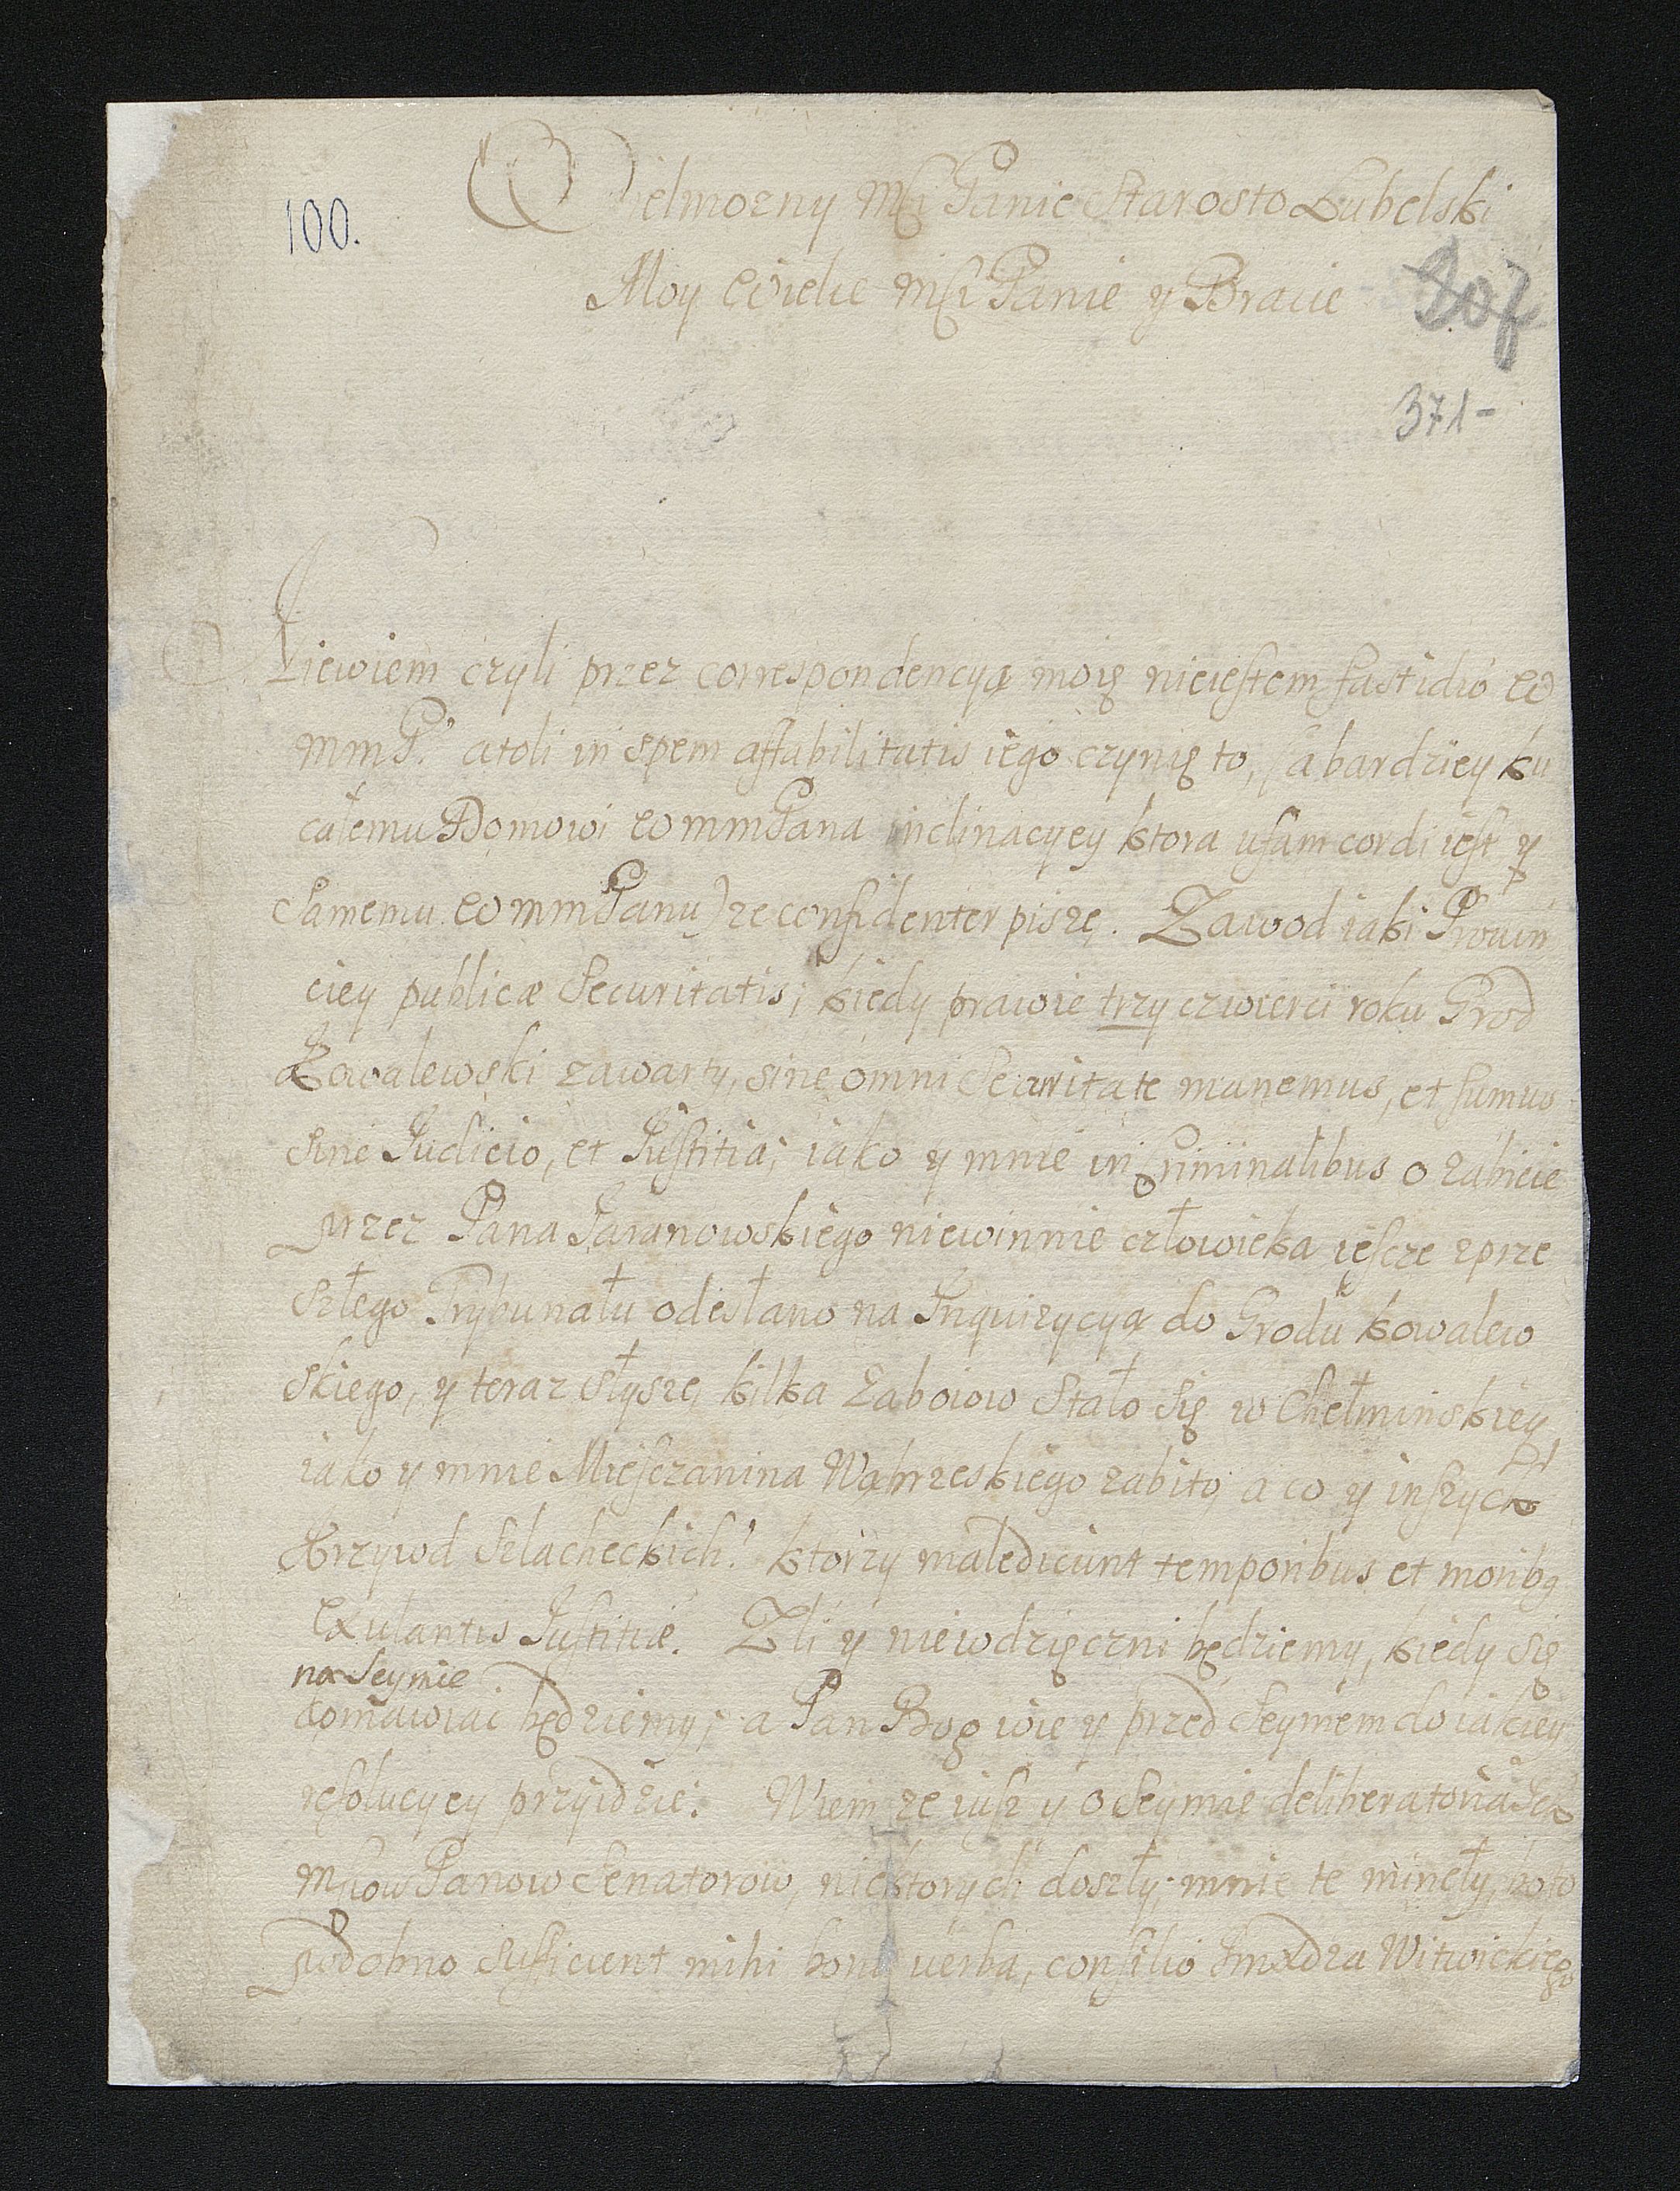 100.
Wielmozny Mci Panie Starosto Lubelski
Moy Wielce Mci Panie y Bracie
207
371-
Niewiem czyli przez correspondencyą moię nieiestem fastidio W
mmP. atoli in spem affabilitatis iego czynię to, (a bardziey ku
całemu Domowi WmmPana inclinacyey ktora ufam cordi iest y
Samemu WmmPanu) ze confidenter piszę. Zawod iaki Prowin
ciey publicæ Securitatis; kiedy prawie trzy czwierci roku Grod
Kowalewski zawarty, sine omni Securitate manemus, et sumus
sine Judicio, et Justitia; iako y mnie in Criminalibus o zabicie
przez Pana Jaranowskiego niewinnie człowieka iescze z prze
szłego Trybunału odesłano na Inquizycyą do Grodu Kowalew
skiego, y teraz słysze, kilka zaboiow Stało się w Chełminskiey
iako y mnie Miesczanina Wąbrzeskiego zabito, a co y inszych
Krzywd Szlacheckich! ktorzy maledicunt temporibus et morib9
exulantis Justitiæ. Zli y niewdzięczni będziemy, kiedy się
na Seymie
domawiac będziemy; a Pan Bog wie y przed Seymem do iakiey
resolucyey przyidzie. Wiem ze iusz y o Seymie deliberatoria Ich
Mciow Panow Senatorow, niektorych doszły; mnie te mineły, bo to
podobno sufficient mihi bona verba, consilio Xiędza Witwickiego